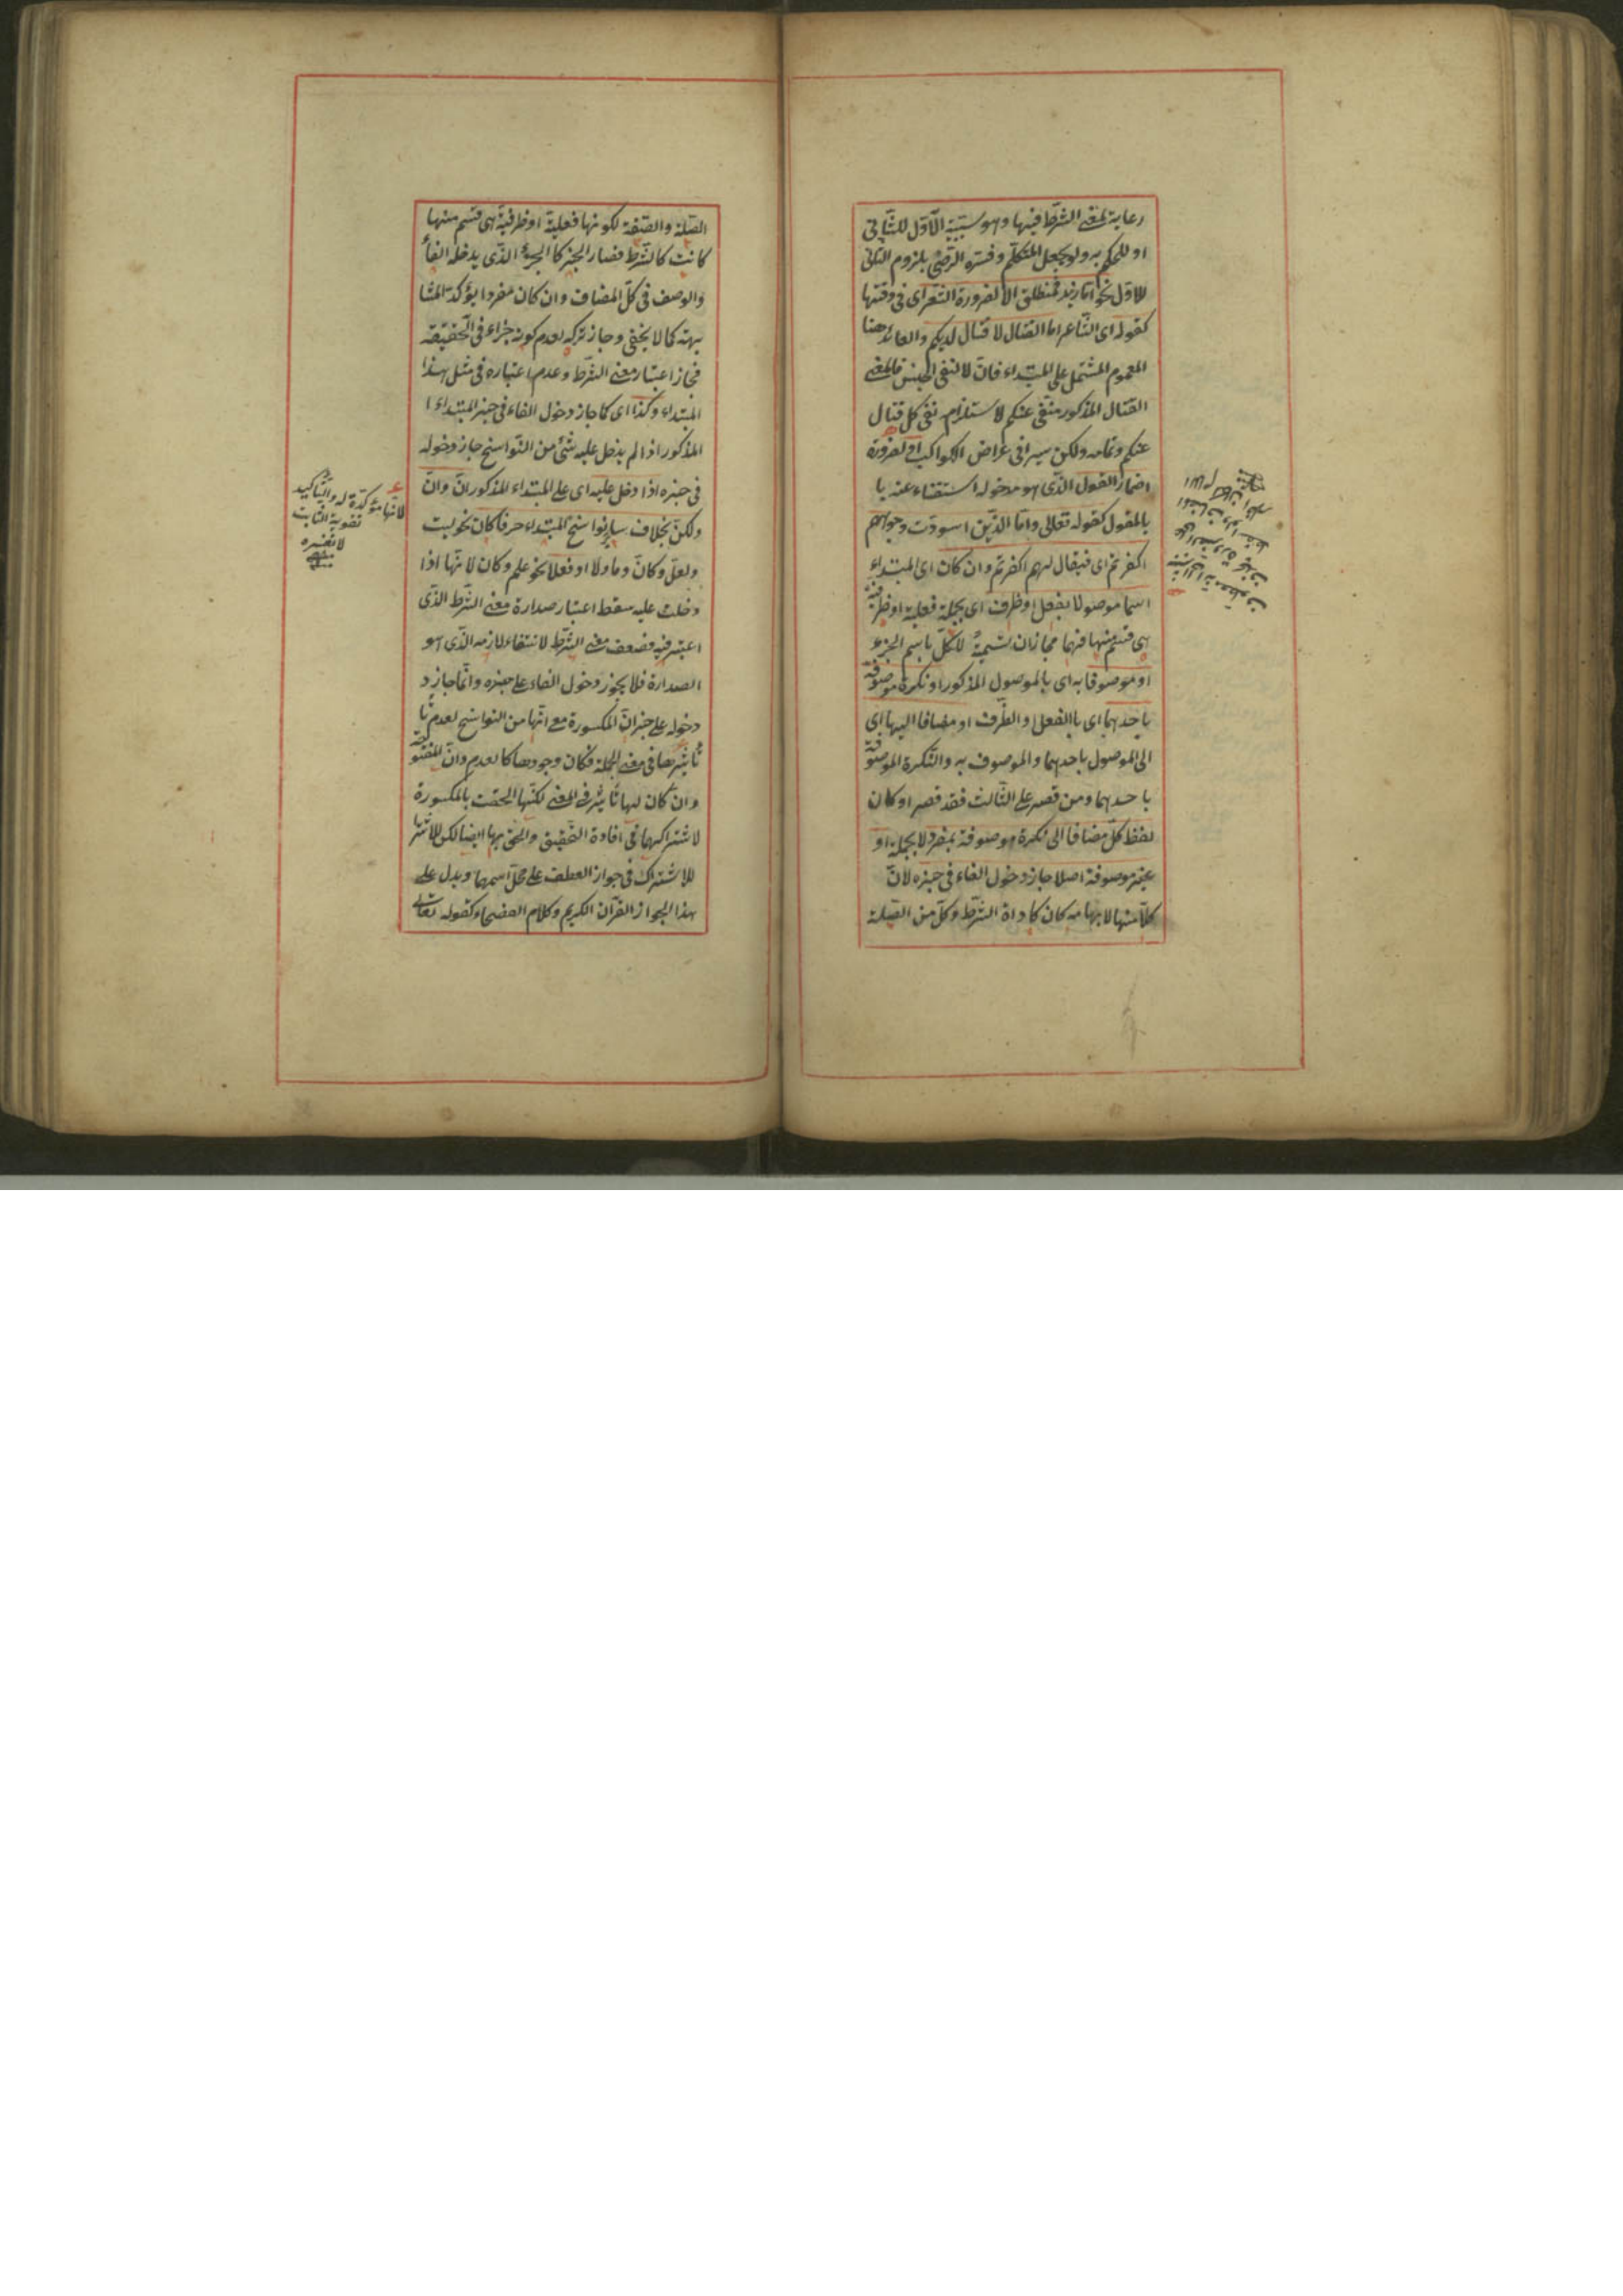 رعاية لمعنى الشرط فيها وهو سببية الاول للثانى
او للحكم به ولو بجعل المتكلم وفسره الرضى بلزوم الثانى
للاول نحو اما زيد فمنطلق الا لضرورة الشعر اى فى وقتها
كقوله اى الشاعر اما القتال لا قتال لديكم والعائد هنا
العموم المشتمل على المبتداء فان لا لنفى الجنس فالمعنى
القتال المذكور منتفى عنكم لاستلزامه نفى كل قتال
عنكم وتمامه ولكن سيرا فى عراض الكواكب او لضرورة
اضمار القول الذى هو مدخوله استغناء عنه با
بالمقول كقوله تعالى واما الذين اسودت وجوههم
اكفرتم اى فيقال لهم اكفرتم وان كان اى المبتداء
اسما موصولا بفعل او ظرف اى بجملة فعلية او ظرفية
هى قسم منها فهما مجازان تسمية للكل باسم الجزء
او موصوفا به اى بالموصول المذكور او نكرة موصوفة
باحدهما اى باالفعل او الظرف او مضافا اليها اى
الى الموصول باحدهما والموصوف به والنكرة الموصوفة
باحدهما ومن قصر على الثالث فقد قصر او كان
لفظ كل مضافا الى نكرة موصوفة بمفرد لا بجملة او
غير موصوفة اصلا جاز دخول الفاء فى خبره لان
كلا منها لابهامه كان كاداة الشرط وكل من الصلة
الصلة والصفة لكونها فعلية او ظرفية هى قسم منها
كانت كالشرط فصار الخبر كا الجزء الذى يدخله الفاء
والوصف فى كل المضاف وان كان مفردا يؤكد المشا
بهته كما لا يخفى وجاز تركه لعدم كونه جزاء فى الحقيقة
فجاز اعتبار معنى الشرط وعدم اعتباره فى مثل هذا
المبتداء وكذا اى كما جاز دخول الفاء فى خبر المبتداء ا
المذكور اذا لم يدخل عليه شئ من النواسخ جاز دخوله
فى خبره اذا دخل عليه اى على المبتداء المذكور ان وان
ولكن بخلاف ساير نواسخ المبتداء حرفا كان نحو ليت
ولعل وكان وما ولا او فعلا نحو علم وكان لانها اذا
دخلت عليه سقط اعتبار صدارة معنى الشرط الذى
اعتبر فيه فضعف معنى الشرط لانتفاء لازمه الذى هو
الصدارة فلا يجوز دخول الفاء على خبره وانما جاز د
دخوله على خبر ان المكسورة مع انها من النواسخ لعدم تا
تأثيرها فى معنى الجملة فكان وجودها كا لعدم وان المفتوحة
وان كان لها تاثير فى المعنى لكنها الحقت بالمكسورة
لاشتراكهما فى افادة التحقيق والحق بها ايضا لكن للاشترا
للاشتراك فى جواز العطف على محل اسمها ويدل على
هذا الجواز القرآن الكريم وكلام الفصحاء كقوله تعالى
لانها مؤكدة له والتأكيد
تقوية الثابت
لا تغيره